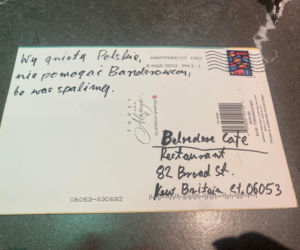 Wy gnioty Polskie,
nie pomagać Banderowcom,
bo was spalimy.
HARTFORD CT 060
8 MAR 2022 PM 2 L
Belvedere Cafe
Restaurant
82 Broad St.
New Britain, Ct. 06053
06053-330682